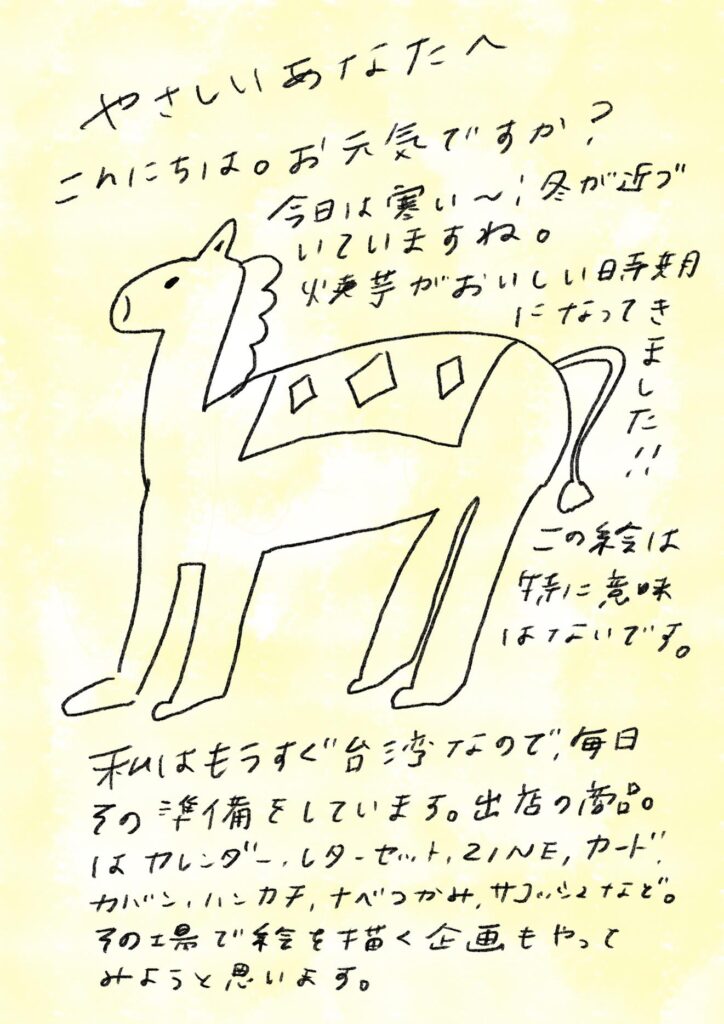 やさしいあなたへ
こんにちは。お元気ですか?
今日は寒い〜!冬が近づ
いていますね。
焼芋がおいしい時期
になってきました!!
この絵は
特に意味
はないです。
私はもうすぐ台湾なので、毎日
その準備をしています。出店の商品。
はカレンダー、レターセット、ZINE、カード、
カバン、ハンカチ、ナベつかみ、サコッシュなど。
その場で絵を描く企画もやって
みようと思います。